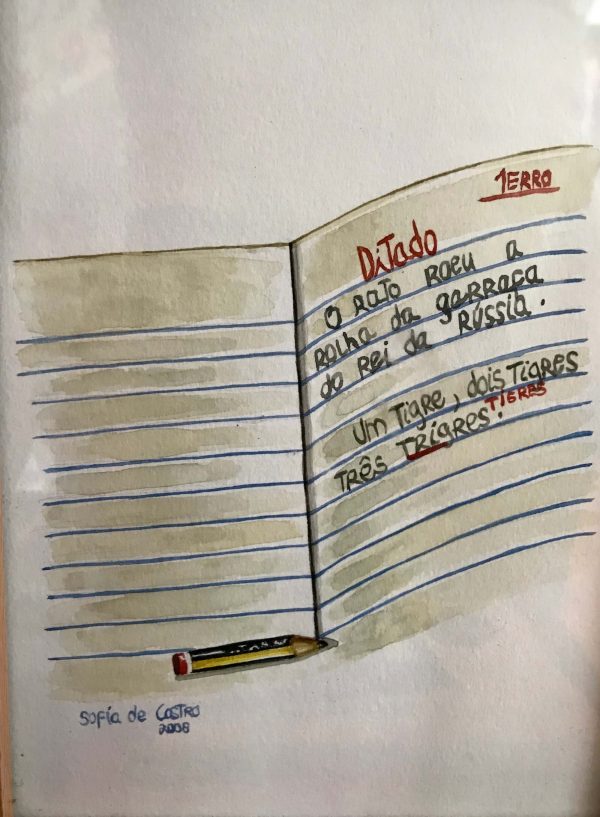 1ERRO
DiTado
O RATO ROEU A
ROLHA DA GARRAFA
DO REI DA RÚSSIA.
UM TigRE, dois TIGRES
TRÊS TRIGRES.
TIGRES
Sofía de CASTRO
2008